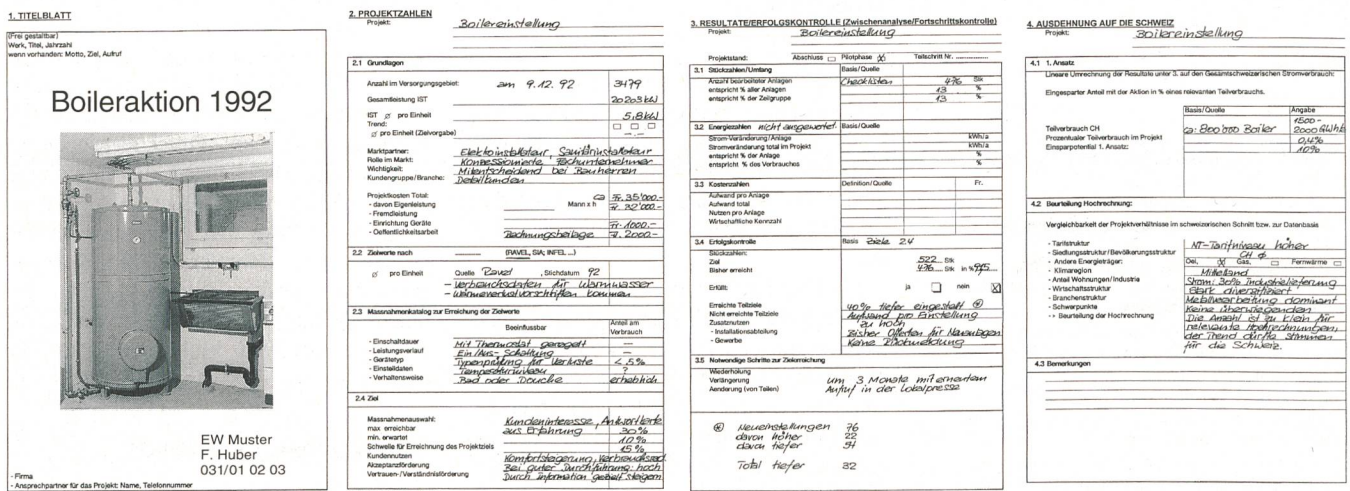 1. TITELBLATT
(Frei gestaltbar)
Werk, Titel, Jahrzahl
wenn vorhanden: Motto, Ziel, Aufruf
Boileraktion 1992
EW Muster
F. Huber
031/01 02 03
- Firma
- Ansprechpartner für das Projekt: Name, Telefonnummer
2. PROJEKTZAHLEN
Projekt: Boilereinstellung
2.1 Grundlagen
Anzahl im Versorgungsgebiet: am 9.12.92 3479
Gesamtleistung IST 20203 kW
IST ø pro Einheit 5,8 kW
Trend:
ø pro Einheit (Zielvorgabe) —.—
Marktpartner: Elektroinstallateur, Sanitärinstallateur
Rolle im Markt: Konzessionierte Fachunternehmer
Wichtigkeit: Mitentscheidend bei Bauherren
Kundengruppe/Branche: Detailkunden
Projektkosten Total: ca Fr. 35'000.-
- davon Eigenleistung Mann x h Fr. 32'000.-
- Fremdleistung
- Einrichtung Geräte Fr. 1000.-
- Oeffentlichkeitsarbeit Rechnungsbeilage Fr. 2000.-
2.2 Zielwerte nach (RAVEL, SIA, INFEL ...)
ø pro Einheit Quelle Ravel , Stichdatum 92
- Verbrauchsdaten für Warmwasser
- Wärmeverlustvorschriften kommen
2.3 Massnahmenkatalog zur Erreichung der Zielwerte
Beeinflussbar Anteil am Verbrauch
- Einschaltdauer Mit Thermostat geregelt —
- Leistungsverlauf Ein/Aus-Schaltung —
- Gerätetyp Typenprüfung für Verluste < 5%
- Einstelldaten Temperaturniveau ?
- Verhaltensweise Bad oder Douche erheblich
2.4 Ziel
Massnahmenauswahl: Kundeninteresse, Antwortkarte
max erreichbar aus Erfahrung 30%
min. erwartet 10%
Schwelle für Erreichnung des Projektziels 15%
Kundennutzen Komfortsteigerung, Verbrauchsred.
Akzeptanzförderung Bei guter Durchführung: hoch
Vertrauen-/Verständnisförderung Durch Information gezielt steigern
3. RESULTATE/ERFOLGSKONTROLLE (Zwischenanalyse/Fortschrittskontrolle)
Projekt: Boilereinstellung
Projektstand: Abschluss Pilotphase Teilschritt Nr. ................
3.1 Stückzahlen/Umfang Basis/Quelle
Anzahl bearbeiteter Anlagen Checklisten 476 Stk
entspricht % aller Anlagen 13 %
entspricht % der Zielgruppe 13 %
3.2 Energiezahlen nicht ausgewertet. Basis/Quelle
Strom-Veränderung/Anlage kWh/a
Stromveränderung total im Projekt kWh/a
entspricht % der Anlage %
entspricht % des Verbrauches %
3.3 Kostenzahlen Definition/Quelle Fr.
Aufwand pro Anlage
Aufwand total
Nutzen pro Anlage
Wirtschaftliche Kennzahl
3.4 Erfolgskontrolle Basis Ziele 2.4
Stückzahlen:
Ziel 522 Stk
Bisher erreicht 476 Stk in %
Erfüllt: ja nein
Erreichte Teilziele 40% tiefer eingestellt ⊛
Nicht erreichte Teilziele Aufwand pro Einstellung
Zusatznutzen zu hoch
- Installationsabteilung Bisher Offerten für Neuanlagen
- Gewerbe Keine Rückmeldung
3.5 Notwendige Schritte zur Zielerreichung
Wiederholung
Verlängerung um 3 Monate mit erneutem
Aenderung (von Teilen) Aufruf in der Lokalpresse
⊛ Neueinstellungen 76
davon höher 22
davon tiefer 54
Total tiefer 32
4. AUSDEHNUNG AUF DIE SCHWEIZ
Projekt: Boilereinstellung
4.1 1. Ansatz
Lineare Umrechnung der Resultate unter 3. auf den Gesamtschweizerischen Stromverbrauch:
Eingesparter Anteil mit der Aktion in % eines relevanten Teilverbrauchs.
Basis/Quelle Angabe
1500-
Teilverbrauch CH ca. 800'000 Boiler 2000 GWh
Prozentualer Teilverbrauch im Projekt 0,4%
Einsparpotential 1. Ansatz: 10%
4.2 Beurteilung Hochrechnung:
Vergleichbarkeit der Projektverhältnisse im schweizerischen Schnitt bzw. zur Datenbasis
- Tarifstruktur NT-Tarifniveau höher
- Siedlungsstruktur/Bevölkerungsstruktur CH ø
- Andere Energieträger: Oel, Gas, Fernwärme
- Klimaregion Mittelland
- Anteil Wohnungen/Industrie Strom: 30% Industrielieferung
- Wirtschaftsstruktur Stark diversifiziert
- Branchenstruktur Metallverarbeitung dominant
- Schwerpunkte Keine überwiegenden
>> Beurteilung der Hochrechnung Die Anzahl ist zu klein für
relevante Hochrechnungen,
der Trend dürfte stimmen
für die Schweiz.
4.3 Bemerkungen